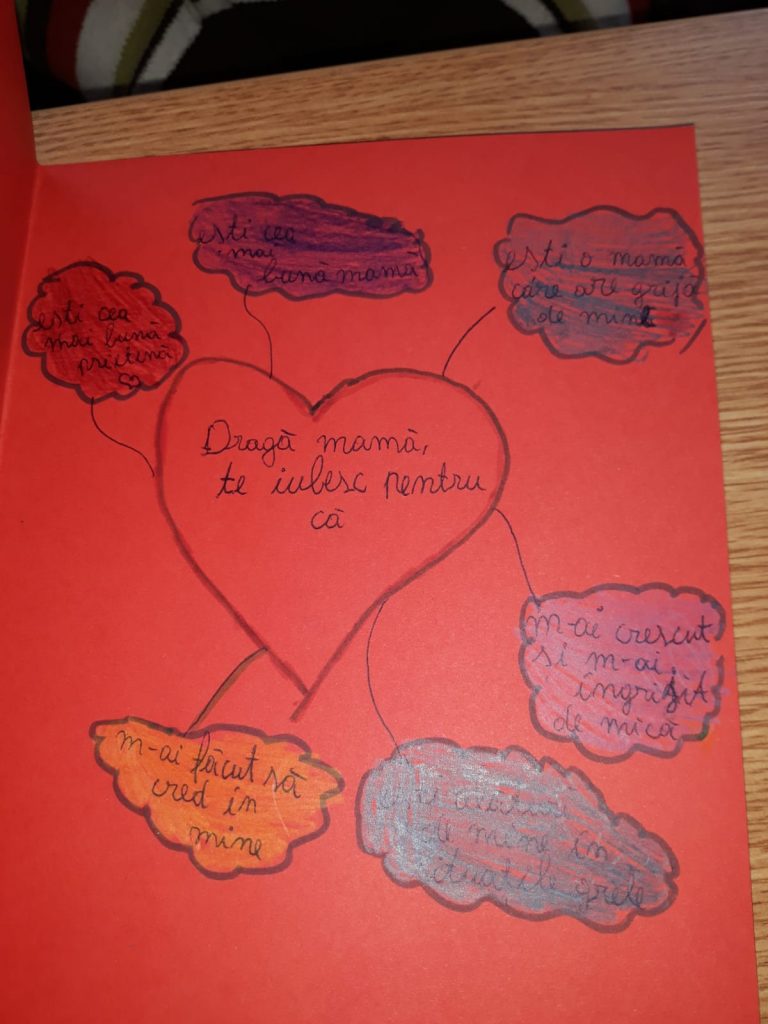 Dragă mamă,
te iubesc pentru
că
esti cea
mai bună
prietenă
esti cea
mai
bună mamă
ești o mamă
care are grijă
de mine
m-ai crescut
si m-ai
îngrijit
de mică
ești alături
de mine în
situațiile grele
m-ai făcut să
cred în
mine